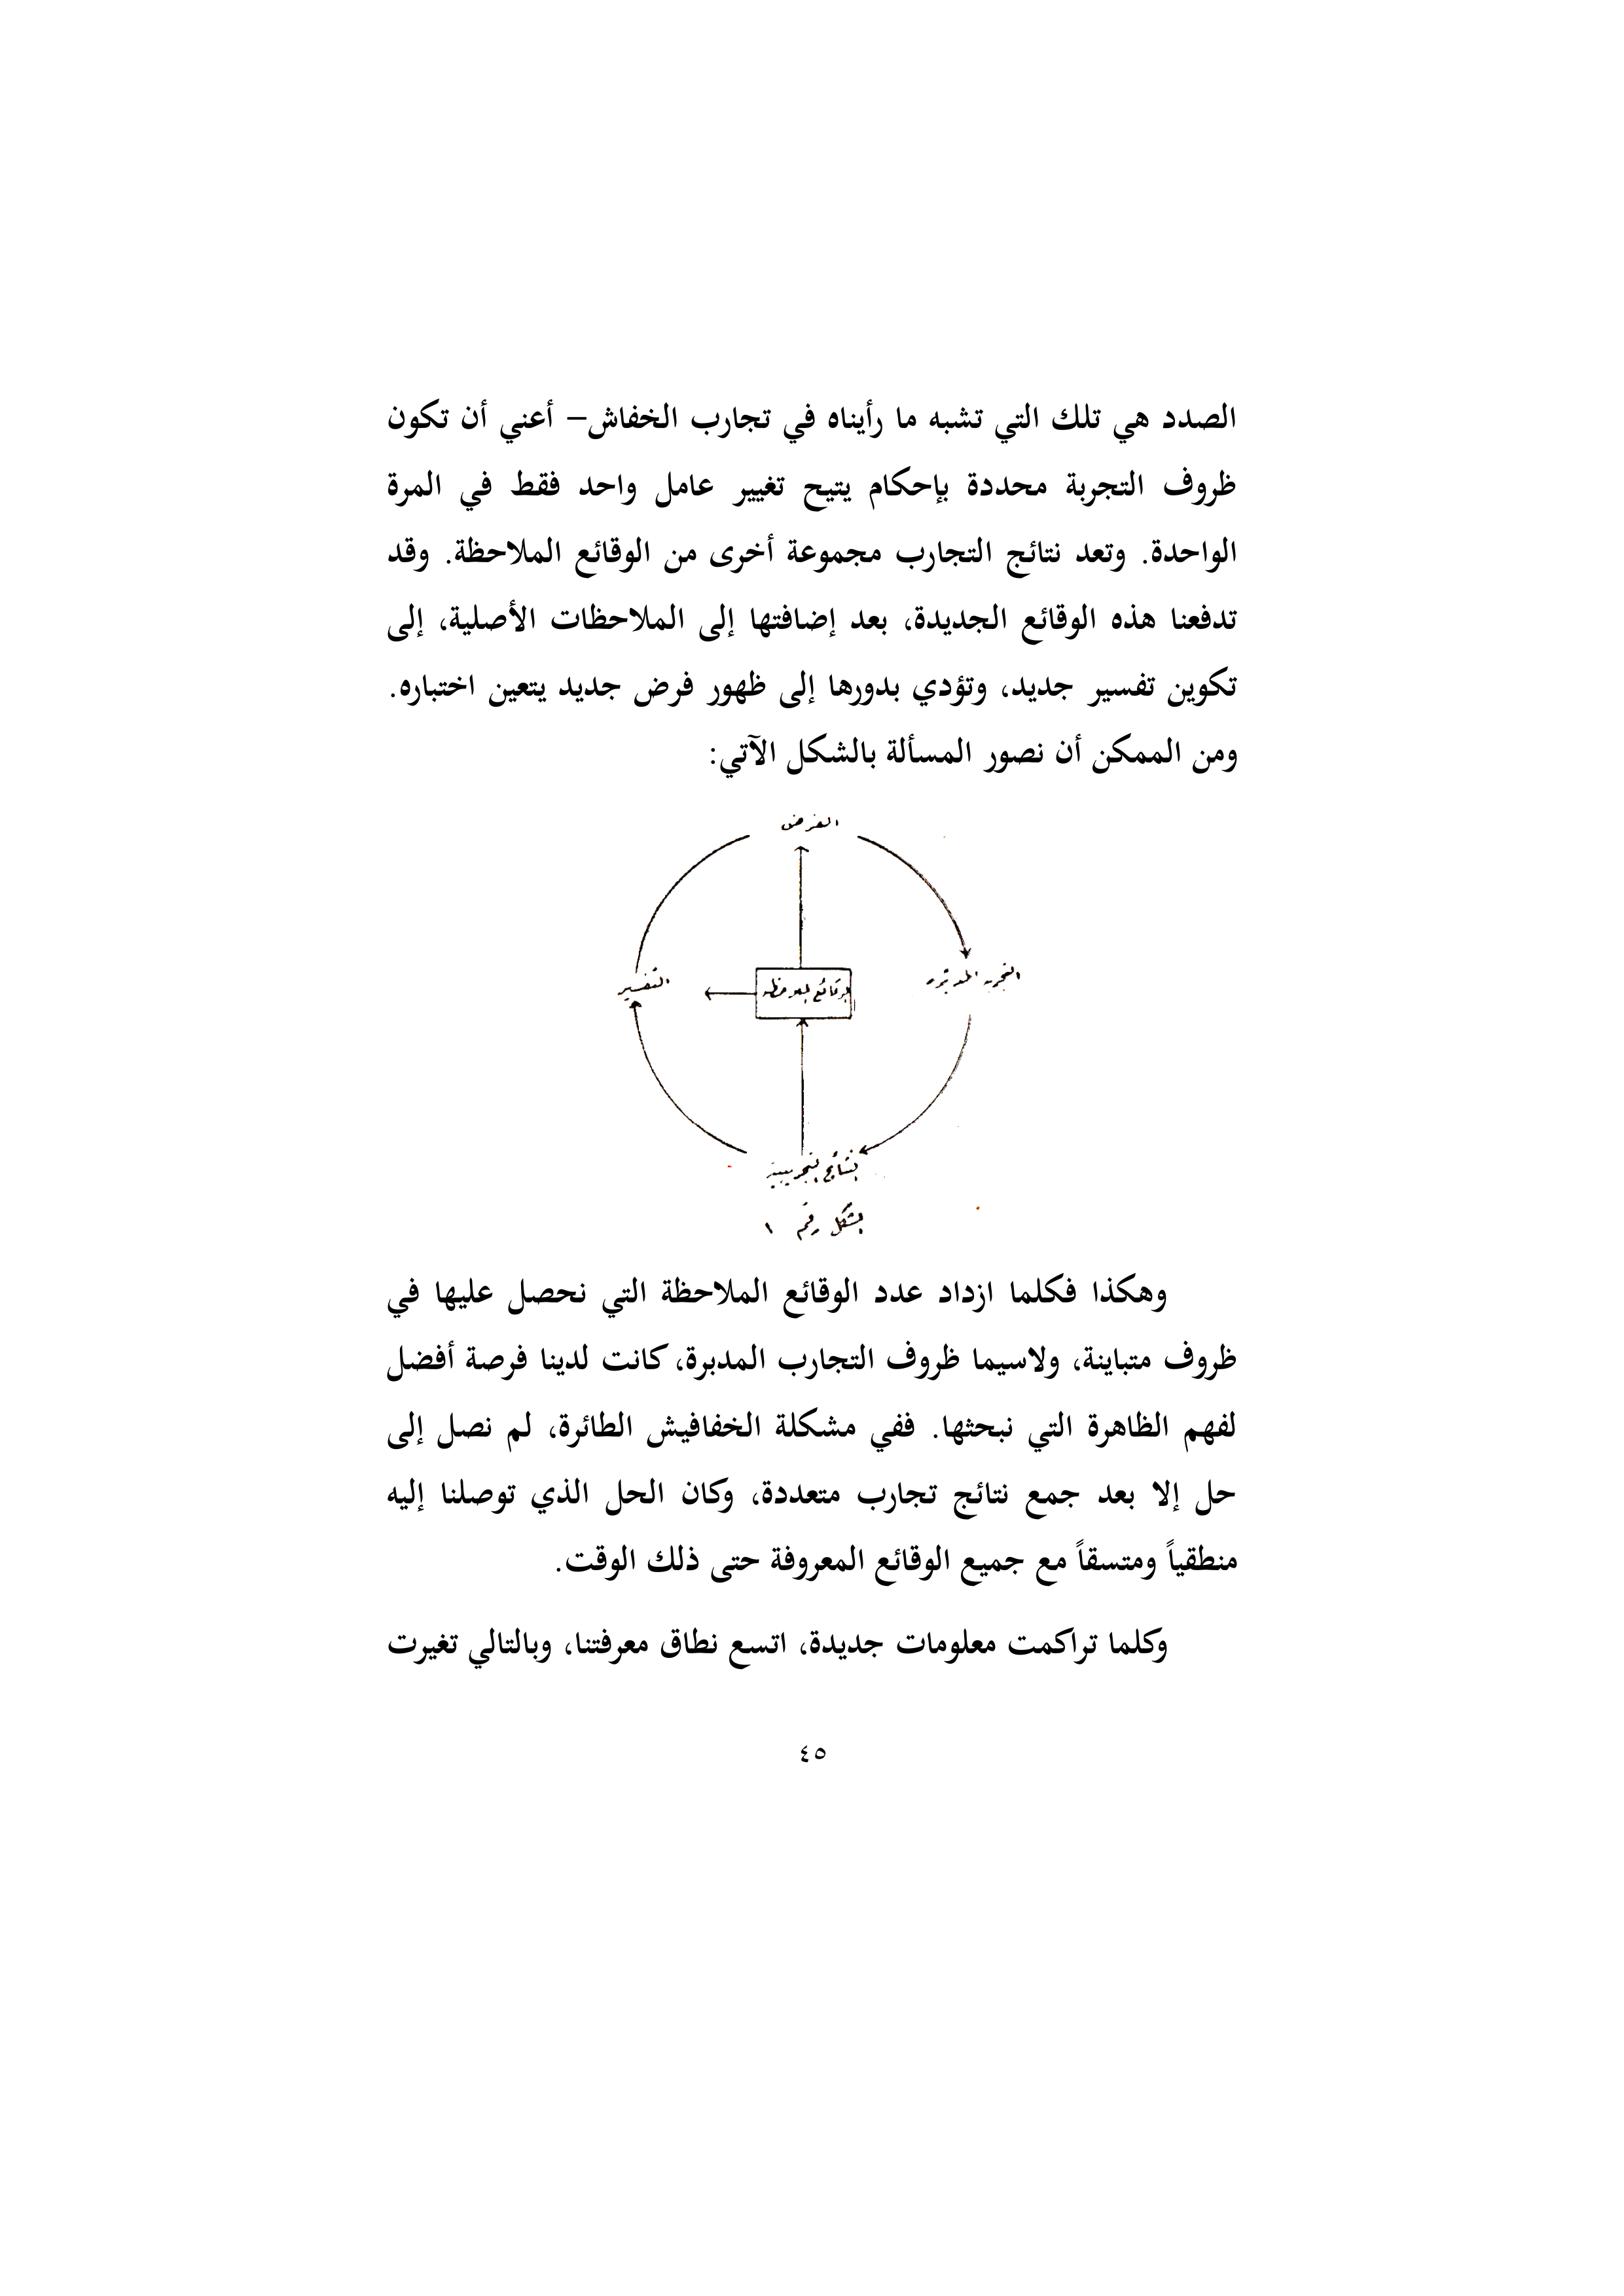 الصدد هي تلك التي تشبه ما رأيناه في تجارب الخفاش– أعني أن تكون
ظروف التجربة محددة بإحكام يتيح تغيير عامل واحد فقط في المرة
الواحدة. وتعد نتائج التجارب مجموعة أخرى من الوقائع الملاحظة. وقد
تدفعنا هذه الوقائع الجديدة، بعد إضافتها إلى الملاحظات الأصلية، إلى
تكوين تفسير جديد، وتؤدي بدورها إلى ظهور فرض جديد يتعين اختباره.
ومن الممكن أن نصور المسألة بالشكل الآتي:
الفرض
التجربة المدبرة
الوقائع الملاحظة
التفسير
النتائج التجريبية
الشكل رقم ١
وهكذا فكلما ازداد عدد الوقائع الملاحظة التي نحصل عليها في
ظروف متباينة، ولاسيما ظروف التجارب المدبرة، كانت لدينا فرصة أفضل
لفهم الظاهرة التي نبحثها. ففي مشكلة الخفافيش الطائرة، لم نصل إلى
حل إلا بعد جمع نتائج تجارب متعددة، وكان الحل الذي توصلنا إليه
منطقياً ومتسقاً مع جميع الوقائع المعروفة حتى ذلك الوقت.
وكلما تراكمت معلومات جديدة، اتسع نطاق معرفتنا، وبالتالي تغيرت
٤٥